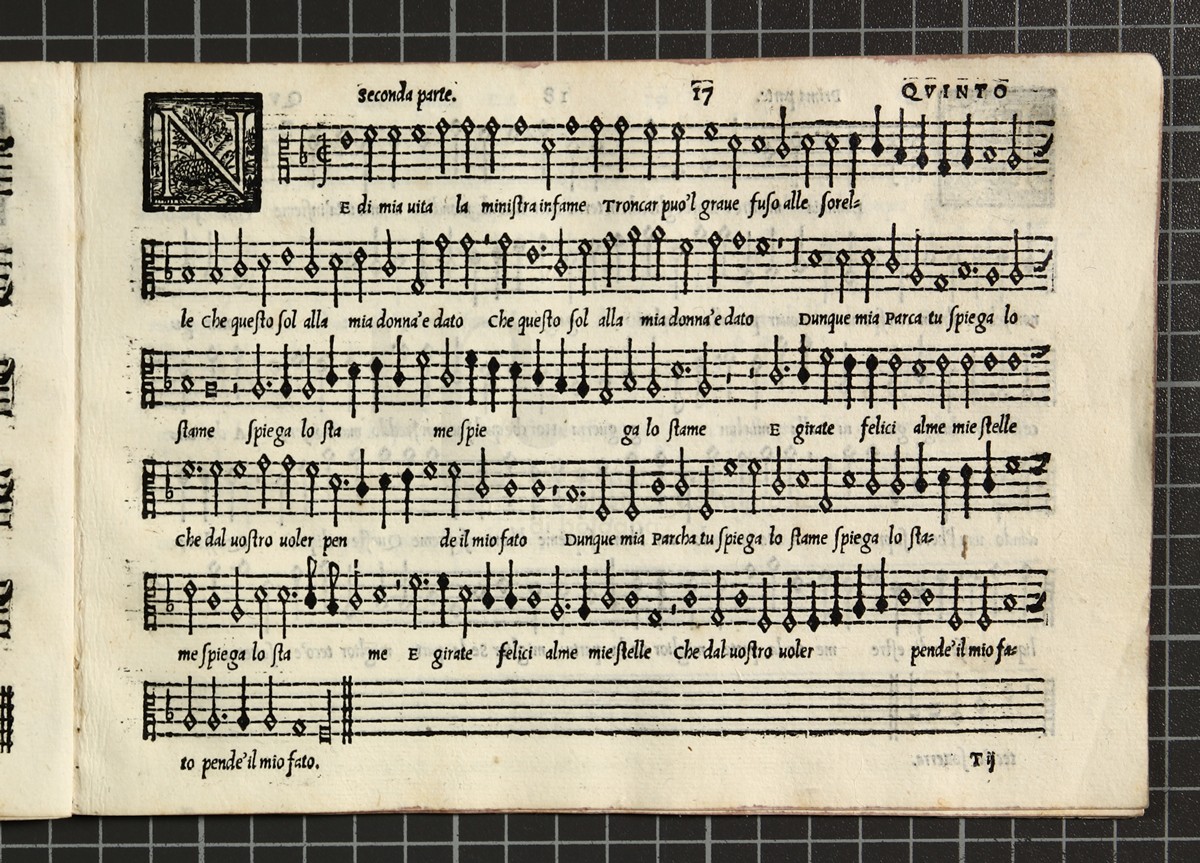 Seconda parte. 17 QVINTO
N E di mia uita la ministra infame Troncar puo'l graue fuso alle sorel=
le Che questo sol alla mia donna'e dato Che questo sol alla mia donna'e dato Dunque mia Parca tu spiega lo
stame spiega lo sta me spie ga lo stame E girate felici alme mie stelle
Che dal uostro uoler pen de il mio fato Dunque mia Parcha tu spiega lo stame spiega lo sta=
me spiega lo sta me E girate felici alme mie stelle Che dal uostro uoler pende'il mio fa=
to pende'il mio fato.
T ij